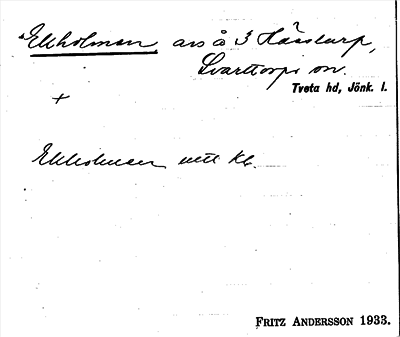 Ekholmen avs å 3 Hässtarp,
Svarttorps sn.
Tveta hd, Jönk. l.
+
Ekholmen utt Kl.
FRITZ ANDERSSON 1933.